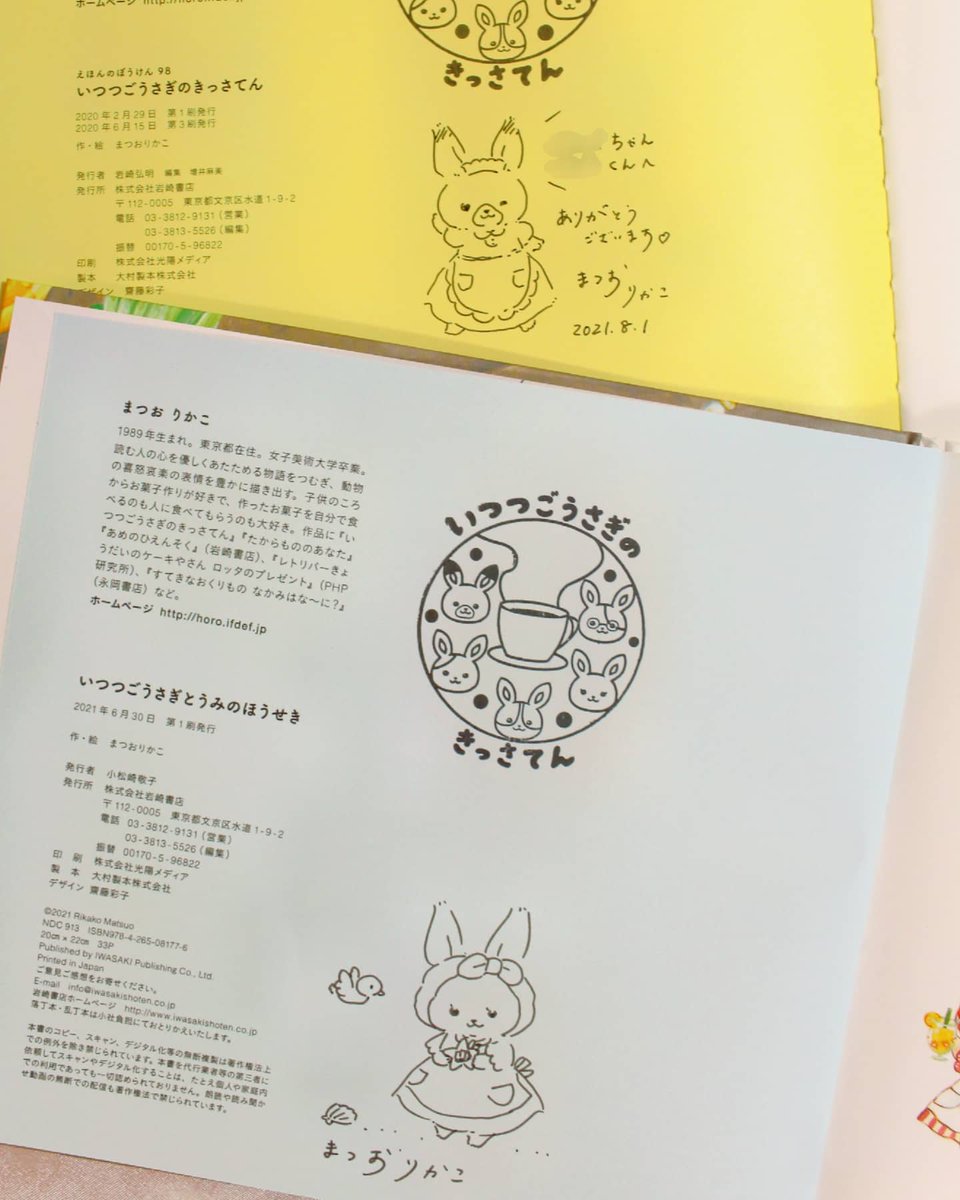 ホームページ http://horo.ifdef.jp
きっさてん
えほんのぼうけん 98
いつつごうさぎのきっさてん
2020年2月29日 第1刷発行
2020年6月15日 第3刷発行
作・絵 まつおりかこ
発行者 岩崎弘明 編集 増井麻美
発行所 株式会社岩崎書店
〒112-0005 東京都文京区水道1-9-2
電話 03-3812-9131(営業)
03-3813-5526(編集)
振替 00170-5-96822
印刷 株式会社光陽メディア
製本 大村製本株式会社
デザイン 齋藤彩子
ちゃん
くんへ
ありがとう
ございます♡
まつおりかこ
2021.8.1
まつお りかこ
1989年生まれ。東京都在住。女子美術大学卒業。
読む人の心を優しくあたためる物語をつむぎ、動物
の喜怒哀楽の表情を豊かに描き出す。子供のころ
からお菓子作りが好きで、作ったお菓子を自分で食
べるのも人に食べてもらうのも大好き。作品に『い
つつごうさぎのきっさてん』『たからもののあなた』
『あめのひえんそく』(岩崎書店)、『レトリバーきょ
うだいのケーキやさん ロッタのプレゼント』(PHP
研究所)、『すてきなおくりもの なかみはな〜に?』
(永岡書店)など。
ホームページ http://horo.ifdef.jp
いつつごうさぎの
きっさてん
いつつごうさぎとうみのほうせき
2021年6月30日 第1刷発行
作・絵 まつおりかこ
発行者 小松崎敬子
発行所 株式会社岩崎書店
〒112-0005 東京都文京区水道1-9-2
電話 03-3812-9131(営業)
03-3813-5526(編集)
振替 00170-5-96822
印 刷 株式会社光陽メディア
製 本 大村製本株式会社
デザイン 齋藤彩子
©2021 Rikako Matsuo
NDC 913 ISBN978-4-265-08177-6
20cm×22cm 33P
Published by IWASAKI Publishing Co., Ltd.
Printed in Japan
ご意見ご感想をお寄せください。
E-mail info@iwasakishoten.co.jp
岩崎書店ホームページ http://www.iwasakishoten.co.jp
落丁本・乱丁本は小社負担にておとりかえいたします。
本書のコピー、スキャン、デジタル化等の無断複製は著作権法上
での例外を除き禁じられています。本書を代行業者等の第三者に
依頼してスキャンやデジタル化することは、たとえ個人や家庭内
での利用であっても一切認められておりません。朗読や読み聞か
せ動画の無断での配信も著作権法で禁じられています。
まつおりかこ